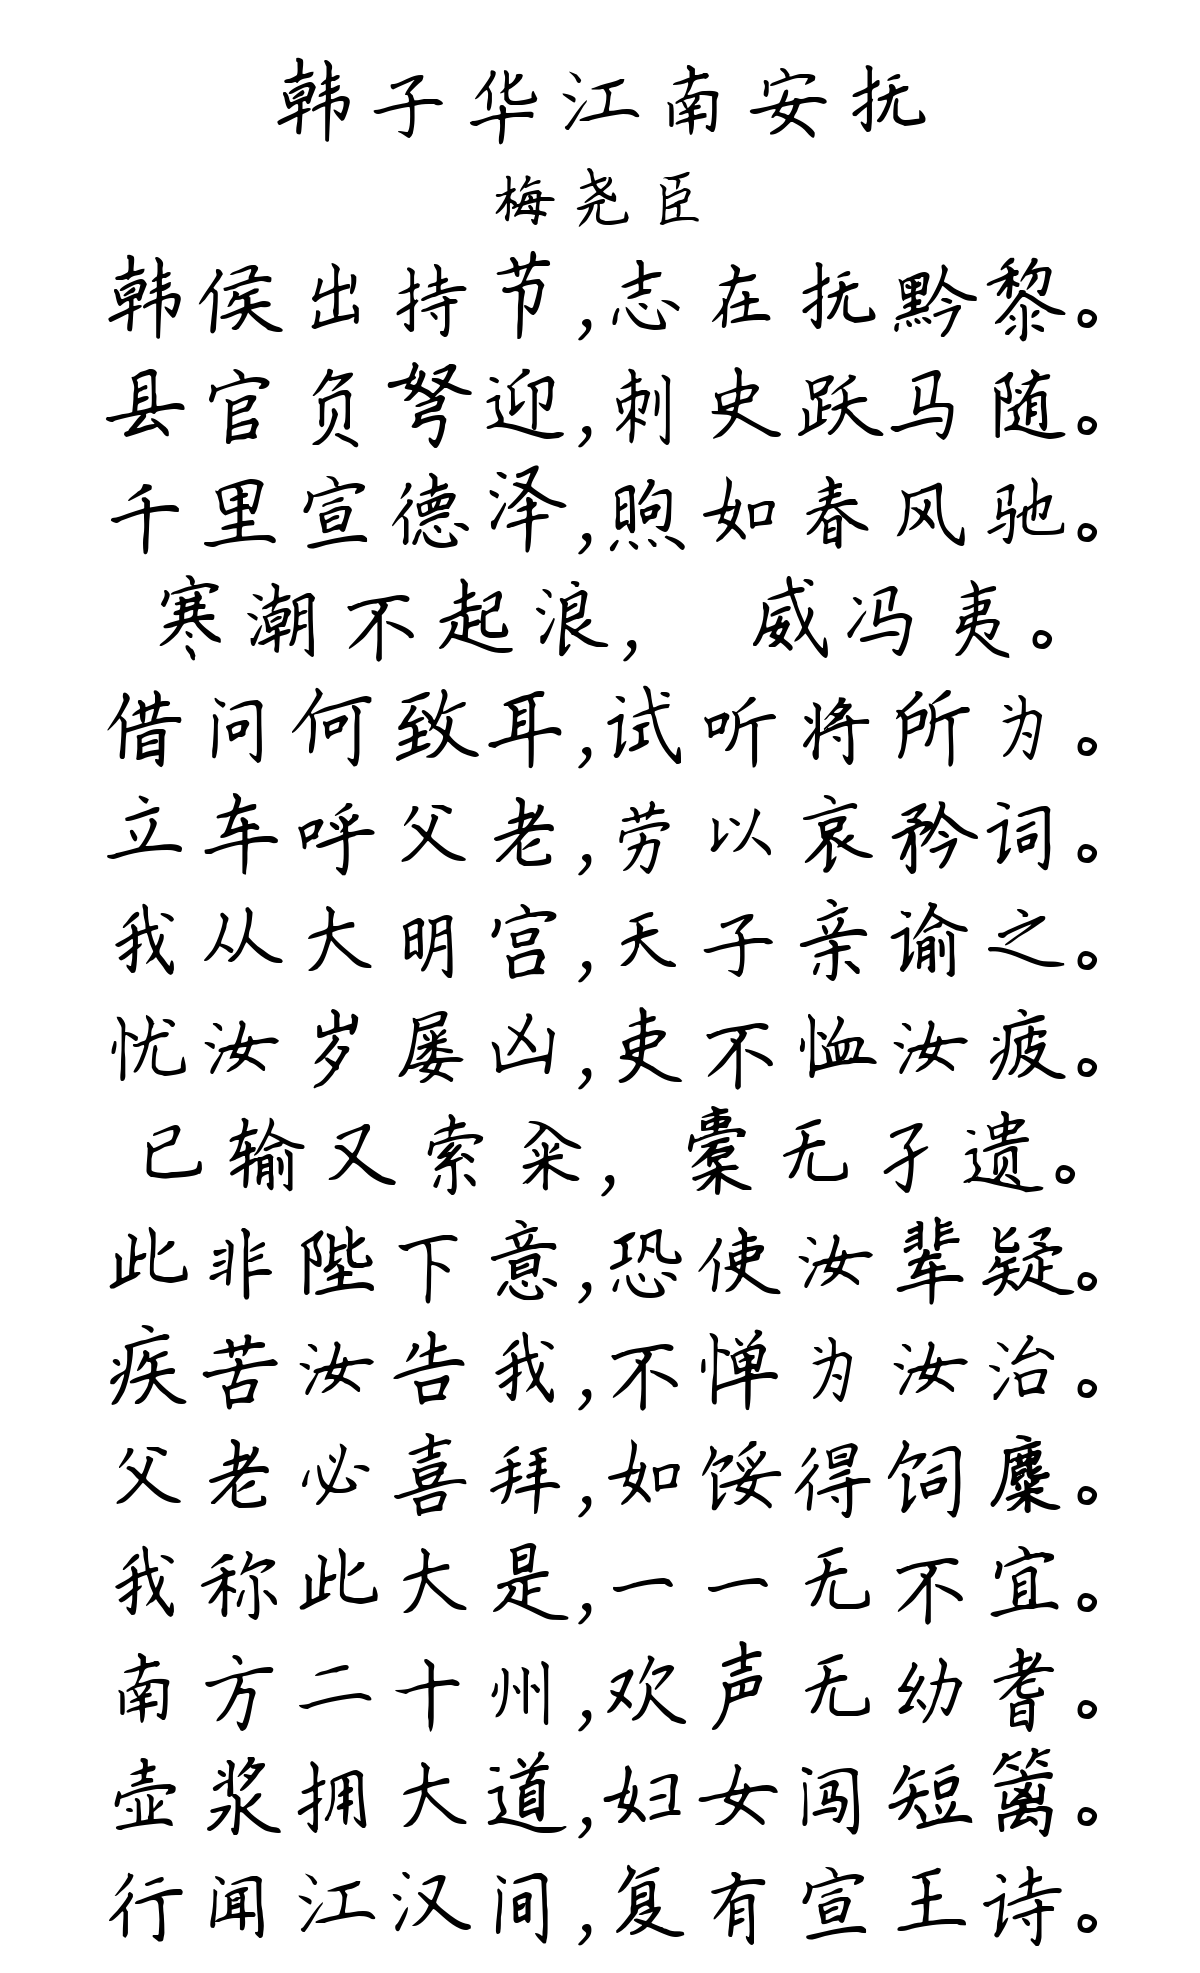 韩子华江南安抚
梅尧臣
韩侯出持节,志在抚黔黎。
县官负弩迎,刺史跃马随。
千里宣德泽,煦如春风驰。
寒潮不起浪, 威冯夷。
借问何致耳,试听将所为。
立车呼父老,劳以哀矜词。
我从大明宫,天子亲谕之。
忧汝岁屡凶,吏不恤汝疲。
已输又索籴, 囊无孑遗。
此非陛下意,恐使汝辈疑。
疾苦汝告我,不惮为汝治。
父老必喜拜,如馁得饲麋。
我称此大是,一一无不宜。
南方二十州,欢声无幼耆。
壶浆拥大道,妇女闯短篱。
行闻江汉间,复有宣王诗。